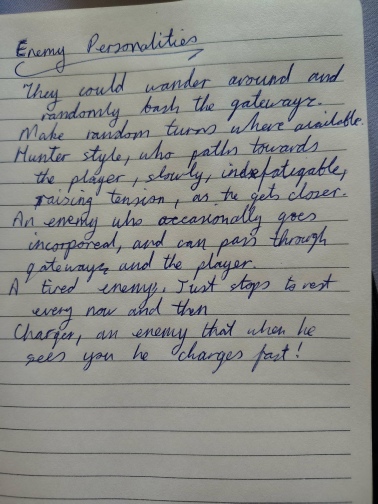 Enemy Personalities
They could wander around and
randomly bash the gateways.
Make random turns where available.
Hunter style, who paths towards
the player, slowly, indefatigable,
raising tension, as he gets closer.
An enemy who occasionally goes
incorporeal, and can pass through
gateways and the player.
A tired enemy. Just stops to rest
every now and then
Charger, an enemy that when he
sees you he charges fast!